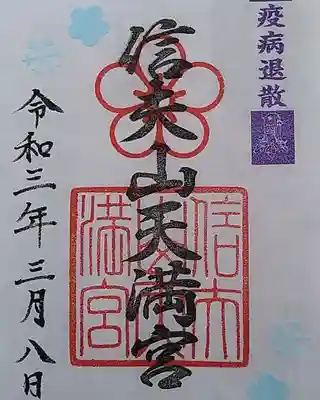 疫病退散
信夫山天満宮
令和三年三月八日